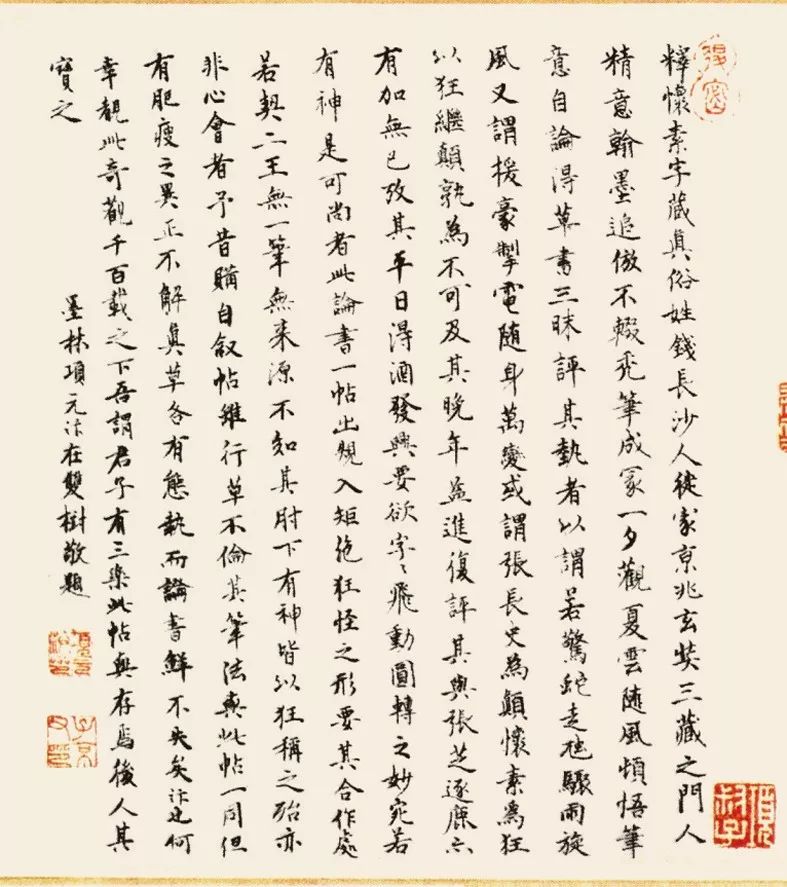 釋懷素字藏真俗姓錢長沙人徙家京兆玄奘三藏之門人
精意翰墨追倣不輟禿筆成冢一夕觀夏雲隨風頓悟筆
意自論得草書三昧評其執者以謂若驚蛇走虺驟雨旋
風又謂援豪掣電隨身萬變或謂張長史為顛懷素為狂
以狂繼顛孰為不可及其晚年益進復評其與張芝逐鹿六
有加無已故其平日得酒發興要欲字〻飛動圓轉之妙宛若
有神是可尚者此論書一帖出規入矩絕狂怪之形要其合作處
若契二王無一筆無来源不知其肘下有神皆以狂稱之殆亦
非心會者予昔購自敘帖雖行草不倫其筆法與此帖一同但
有肥瘦之異正不解真草各有態執而論書鮮不失矣汴也何
幸覩此奇觀千百載之下吾謂君子有三樂此帖與存焉後人其
寶之
墨林項元汴在雙樹敬題
項元汴印
子京父印
項叔子